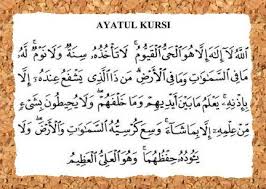 AYATUL KURSI
اللَّهُ لَآ إِلَٰهَ إِلَّا هُوَ الْحَيُّ الْقَيُّومُ ۚ لَا تَأْخُذُهُ سِنَةٌ وَلَا نَوْمٌ ۚ لَهُ
مَا فِي السَّمَاوَاتِ وَمَا فِي الْأَرْضِ ۗ مَنْ ذَا الَّذِي يَشْفَعُ عِنْدَهُ إِلَّا
بِإِذْنِهِ ۚ يَعْلَمُ مَا بَيْنَ أَيْدِيهِمْ وَمَا خَلْفَهُمْ ۖ وَلَا يُحِيطُونَ بِشَيْءٍ
مِنْ عِلْمِهِ إِلَّا بِمَا شَاءَ ۚ وَسِعَ كُرْسِيُّهُ السَّمَاوَاتِ وَالْأَرْضَ ۖ وَلَا
يَئُودُهُ حِفْظُهُمَا ۚ وَهُوَ الْعَلِيُّ الْعَظِيمُ